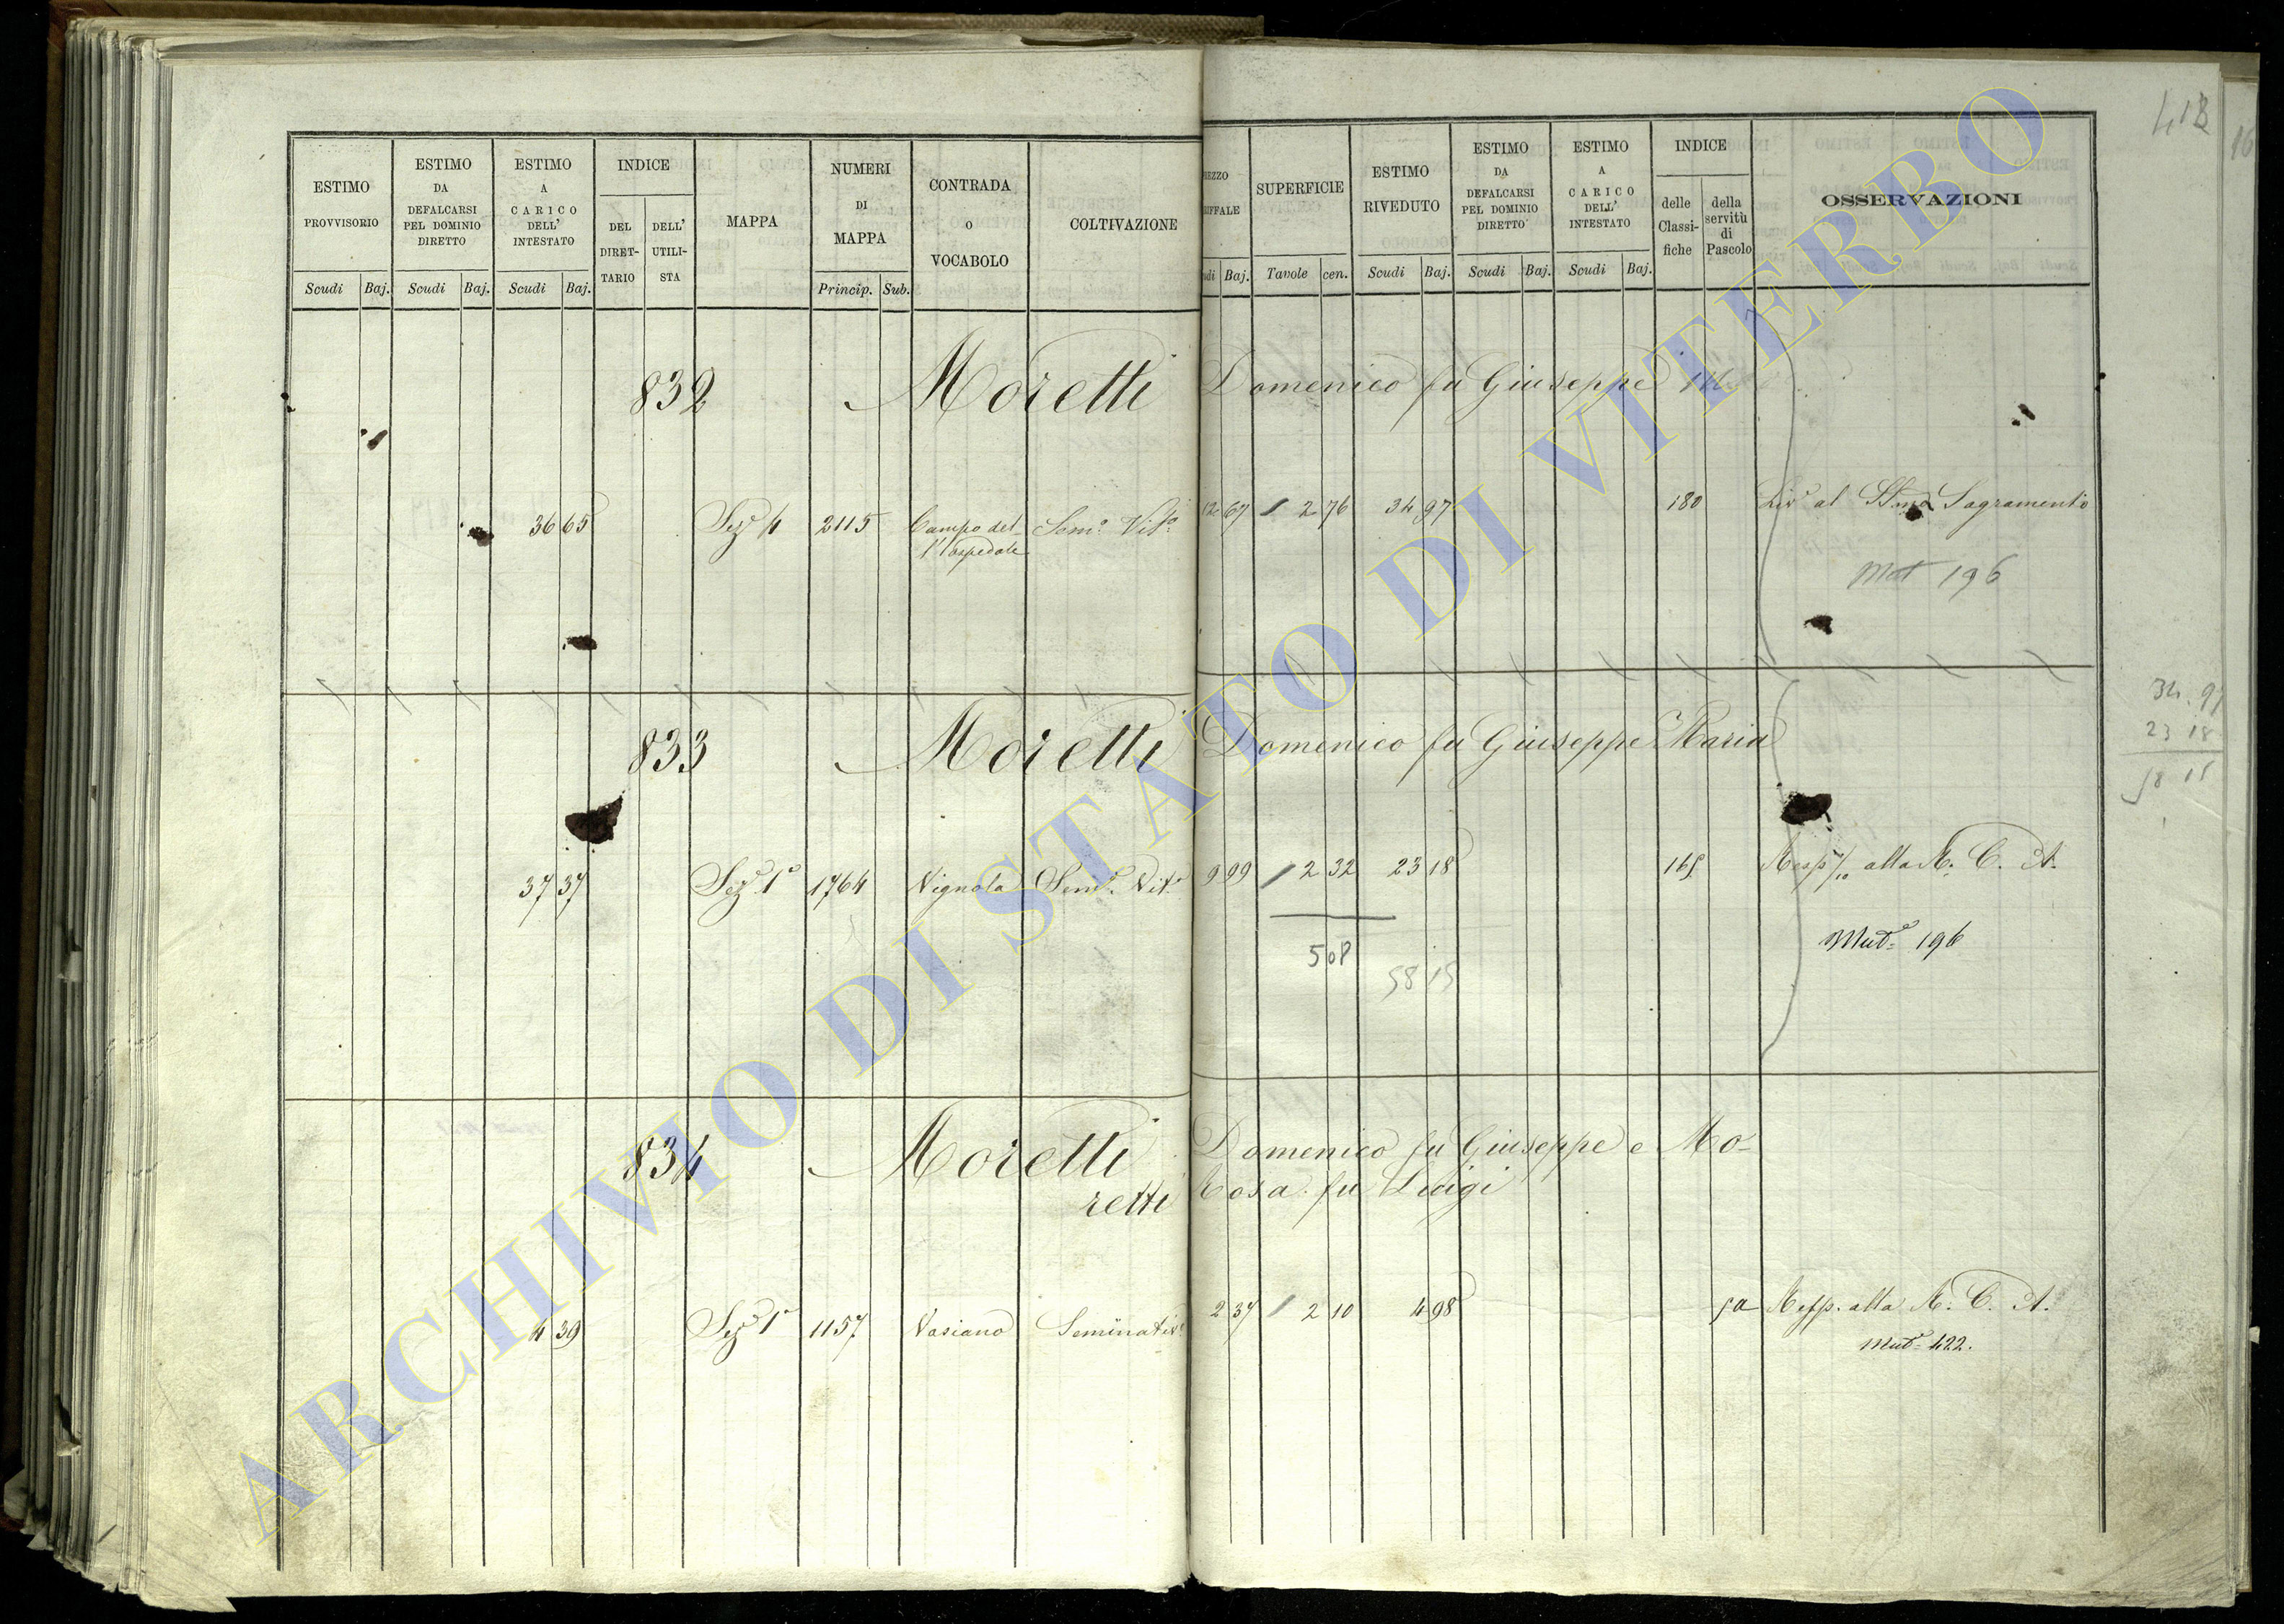 413
16
ESTIMO PROVVISORIO Scudi Baj.
ESTIMO DA DEFALCARSI PEL DOMINIO DIRETTO Scudi Baj.
ESTIMO A CARICO DELL' INTESTATO Scudi Baj.
INDICE DEL DIRET-TARIO DELL' UTILI-STA
MAPPA
NUMERI DI MAPPA Princip. Sub.
CONTRADA O VOCABOLO
COLTIVAZIONE
SUPERFICIE Tavole cen.
ESTIMO RIVEDUTO Scudi Baj.
ESTIMO DA DEFALCARSI PEL DOMINIO DIRETTO Scudi Baj.
ESTIMO A CARICO DELL' INTESTATO Scudi Baj.
INDICE delle Classi-fiche della servitù di Pascolo
OSSERVAZIONI
832 Moretti Domenico fu Giuseppe
36 65 Sez. 4 2115 Campo del- Sem.o Vit.o 12 67 2 76 34 97 180 Liv.o al SSmo Sagramento
l'ospedale
Mut 196
34. 97
23 18
58 15
833 Moretti Domenico fu Giuseppe Maria
37 37 Sez. 1a 1764 Vignola Sem.o Vit.o 9 99 2 32 23 18 165 Resp. alla R. C. A.
Mut.e 196
5 08
58 15
834 Moretti Domenico fu Giuseppe e Mo-
retti Rosa fu Luigi
4 39 Sez. 1a 1157 Vasiano Seminativo 2 37 2 10 4 98 Resp. alla R. C. A.
Mut.e 422.
ARCHIVIO DI STATO DI VITERBO